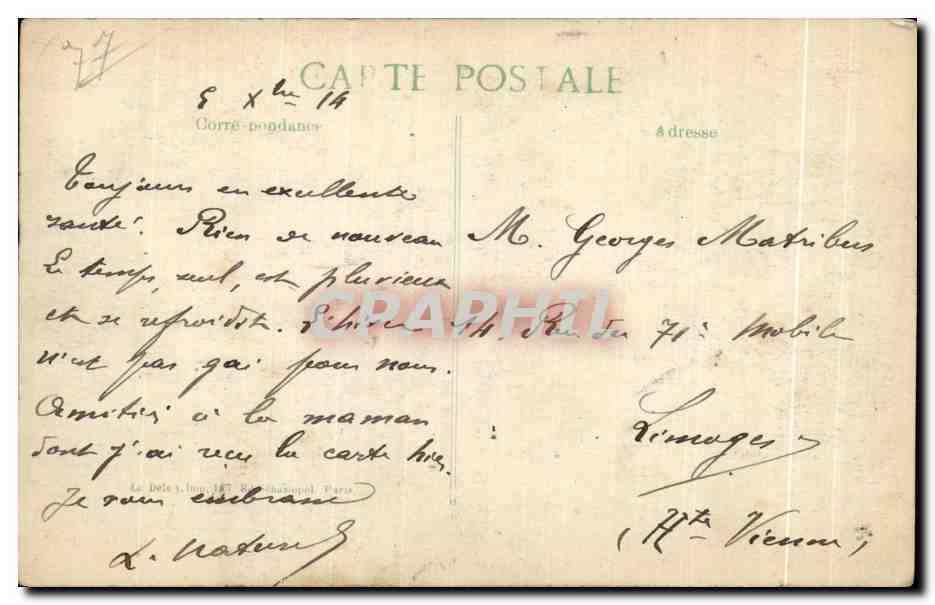 77
CARTE POSTALE
5 Xbre 14
Correspondance
Adresse
Toujours en excellente
santé. Rien de nouveau
Le temps, seul, est pluvieux
et se refroidit. L'hiver
n'est pas gai pour nous.
Amitiés à la maman
dont j'ai reçu la carte hier.
Je vous embrasse
L.
M. Georges Matribus
14, Rue du 71e Mobile
Limoges
(Hte Vienne)
Le Deley, Imp. 127 Paris
CRAPHEL